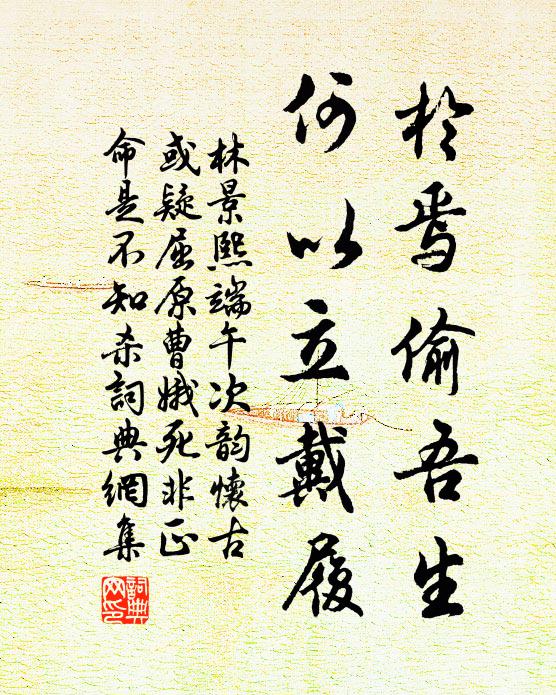 於焉偷吾生
何以立戴履
林景熙端午次韵懷古
或疑屈原曹娥死非正
命是不知杀詞典網集
詞典
网印